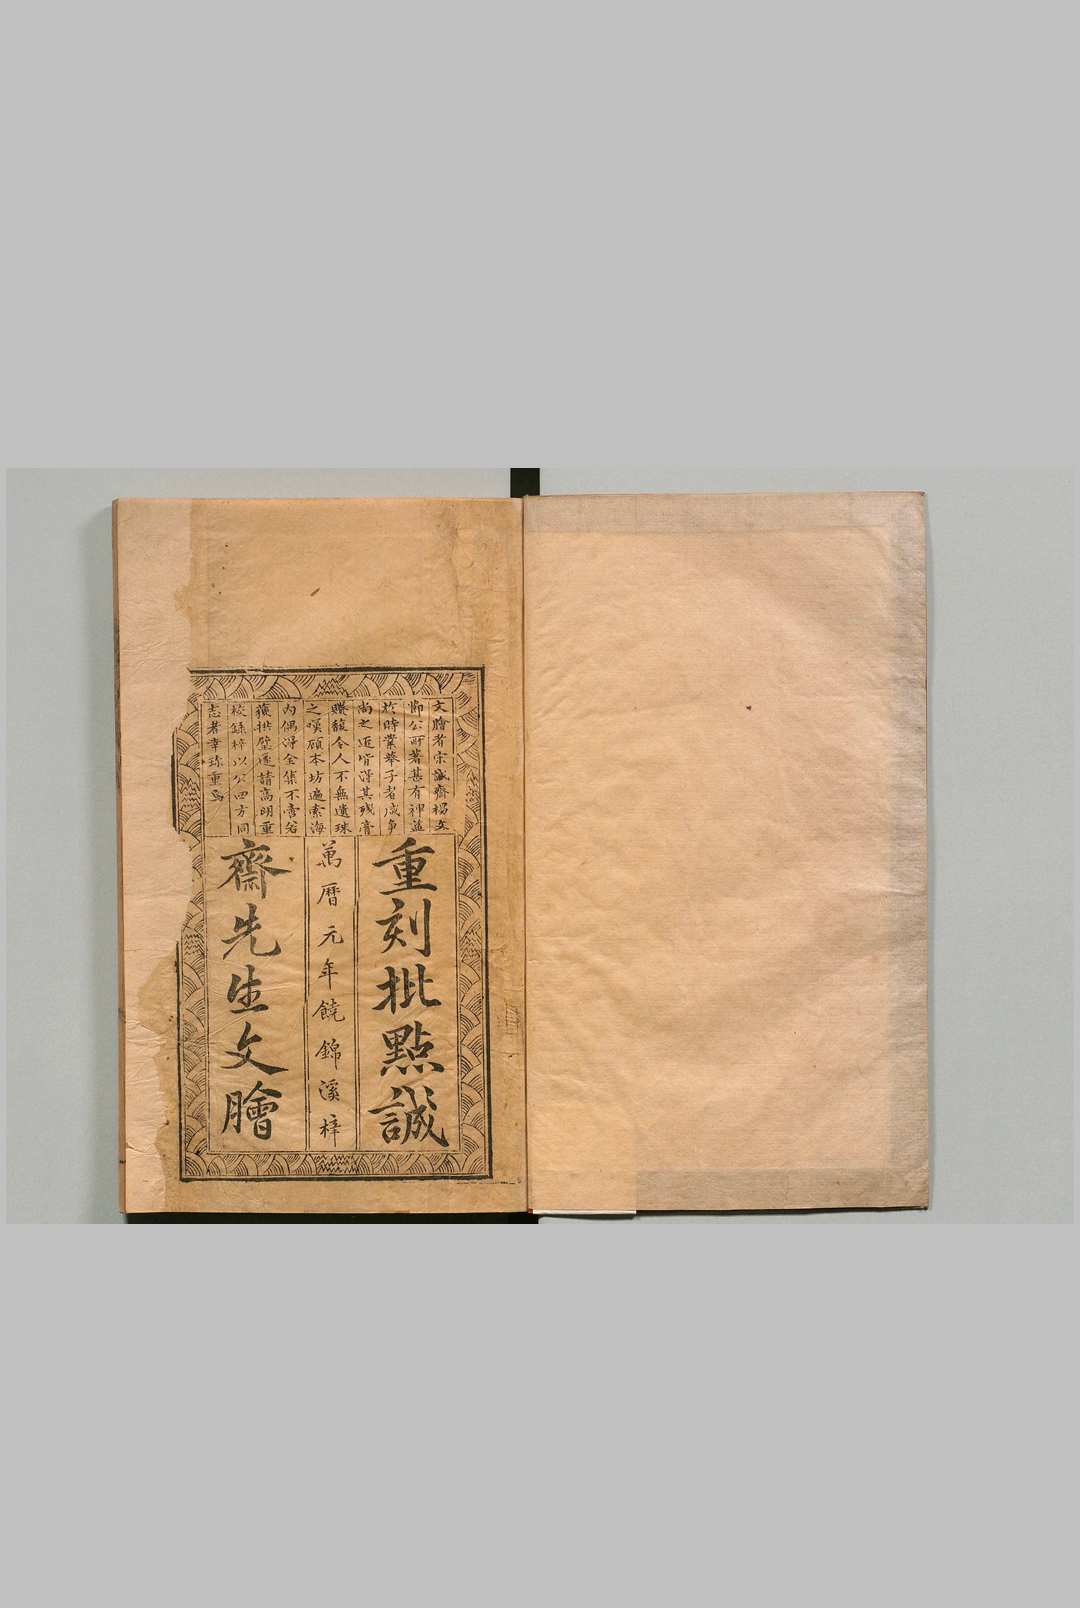 文膾者宗誠齋楊文
節公所著甚有神益
於時業舉子者咸爭
尚之近皆得其殘膏
賸馥令人不無遺珠
之嘆頋本坊遍索海
內偶淂全集不啻若
獲拱璧遂請高明重
校錄梓以公四方同
志者幸珎重焉
重刻批點誠
萬曆元年饒錦溪梓
齋先生文膾